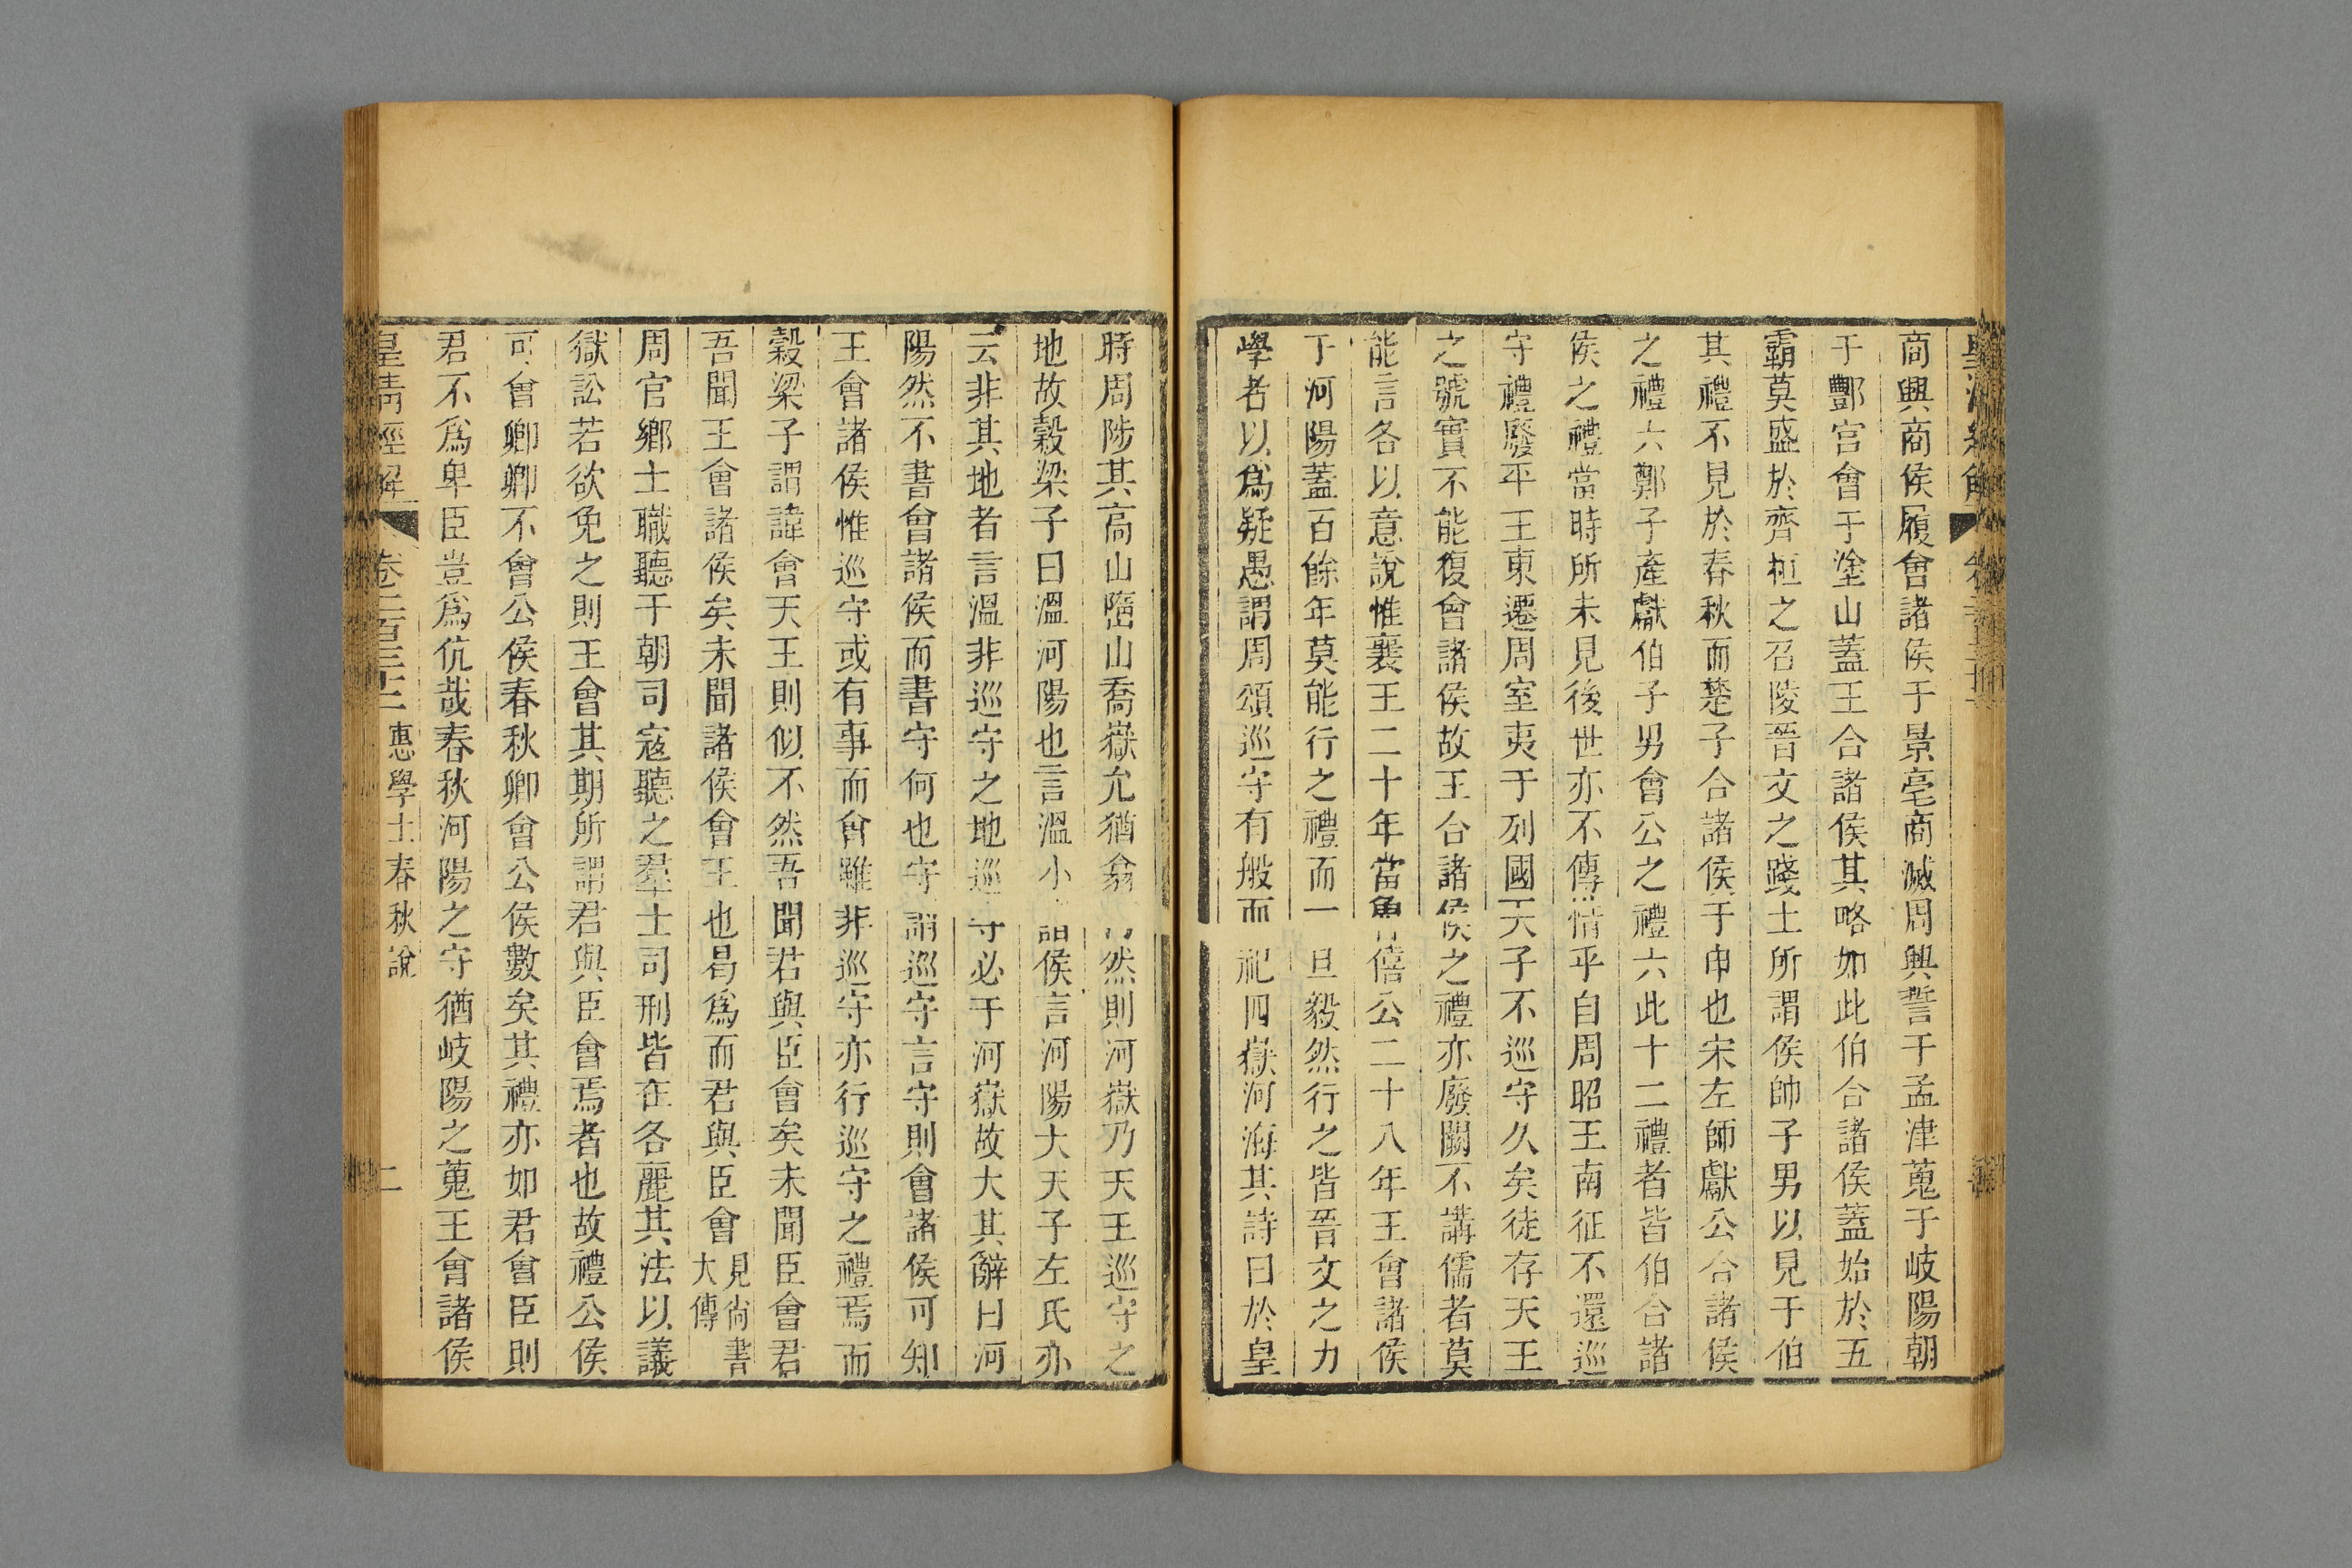 商興商侯履會諸侯于景亳商滅周興誓于孟津蒐于岐陽朝
于酆宮會于塗山蓋王合諸侯其略如此伯合諸侯蓋始於五
霸莫盛於齊桓之召陵晉文之踐土所謂侯帥子男以見于伯
其禮不見於春秋而楚子合諸侯于申也宋左師獻公合諸侯
之禮六鄭子產獻伯子男會公之禮六此十二禮者皆伯合諸
侯之禮當時所未見後世亦不傳惜乎自周昭王南征不還巡
守禮廢平王東遷周室夷于列國天子不巡守久矣徒存天王
之號實不能復會諸侯故王合諸侯之禮亦廢闕不講儒者莫
能言各以意說惟襄王二十年當魯僖公二十八年王會諸侯
于河陽蓋百餘年莫能行之禮而一旦毅然行之皆晉文之力
學者以爲疑愚謂周頌巡守有般而祀四嶽河海其詩曰於皇
時周陟其高山墮山喬嶽允猶翕河然則河嶽乃天王巡守之
地故穀梁子曰溫河陽也言溫小諸侯言河陽大天子左氏亦
云非其地者言溫非巡守之地巡守必于河嶽故大其辭曰河
陽然不書會諸侯而書守何也守謂巡守言守則會諸侯可知
王會諸侯惟巡守或有事而會雖非巡守亦行巡守之禮焉而
穀梁子謂諱會天王則似不然吾聞君與臣會矣未聞臣會君
吾聞王會諸侯矣未聞諸侯會王也曷爲而君與臣會見尚書大傳
周官鄉士職聽于朝司寇聽之羣士司刑皆在各麗其法以議
獄訟若欲免之則王會其期所謂君與臣會焉者也故禮公侯
可會卿卿不會公侯春秋卿會公侯數矣其禮亦如君會臣則
君不爲卑臣豈爲伉哉春秋河陽之守猶岐陽之蒐王會諸侯
皇清經解 卷二百三十二 惠學士春秋說 二